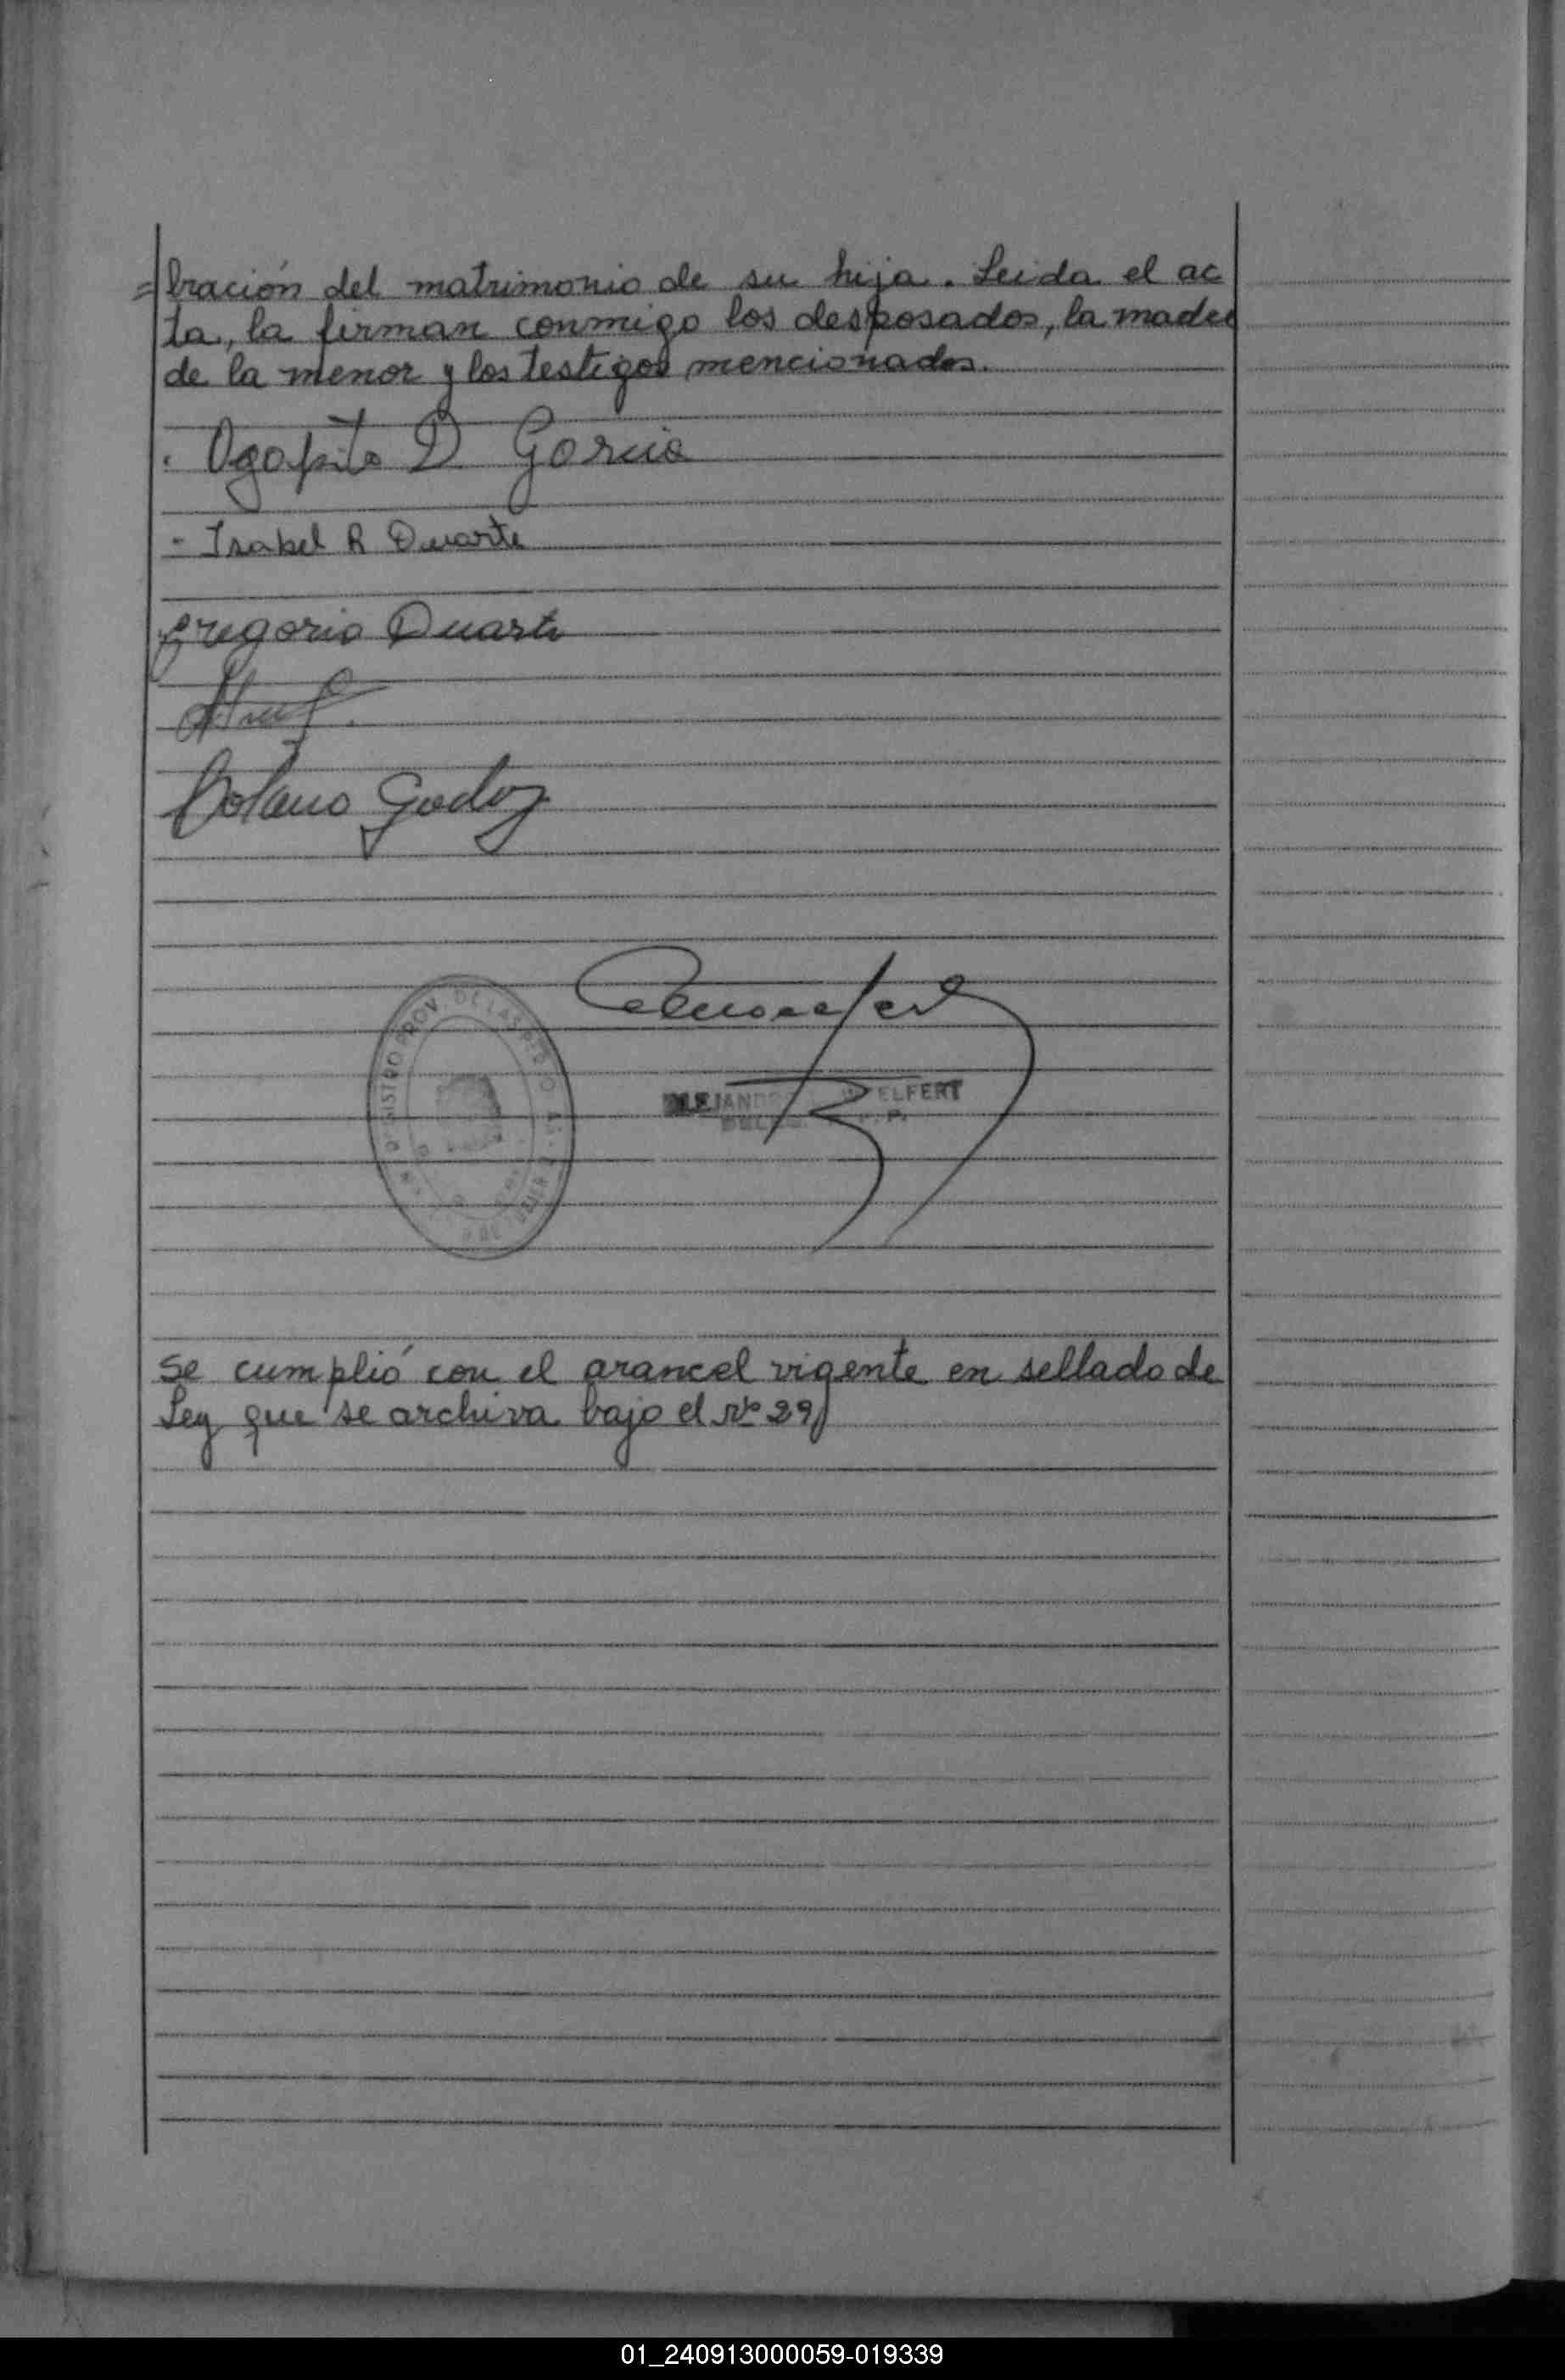 =bración del matrimonio de su hija. Leida el ac
ta, la firman conmigo los desposados, la madre
de la menor y los testigos mencionados.
Agapito D Garcia
- Isabel R Duarte
Gregoria Duarte
Godoy
REGISTRO PROV. DE LAS
ALEJAND ELFERT
Se cumplió con el arancel vigente en sellado de
Ley que se archiva bajo el Nº 29
01_240913000059-019339